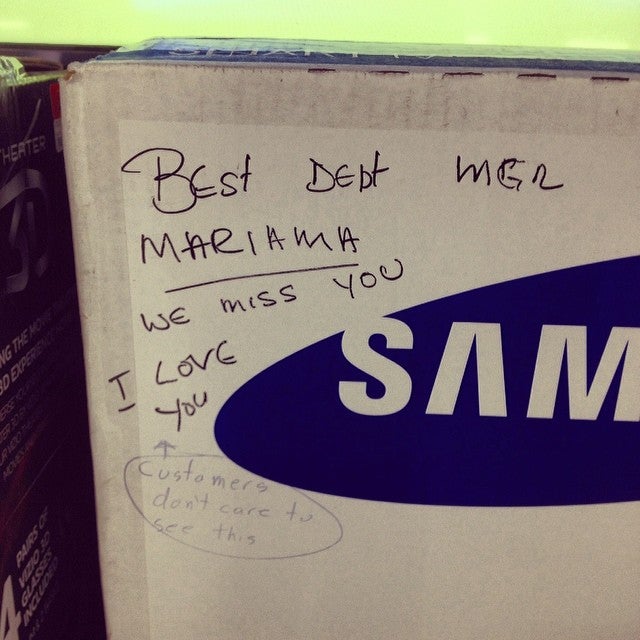 BEst DEpt MGR
MARIAMA
WE MISS YOU
I LOVE
YOU
Customers
don't care to
see this
SAM
HEATER
3D
NG THE MO
3D EXPERIEN
4
PAIRS OF
3D
GLASSES
INCLUDED